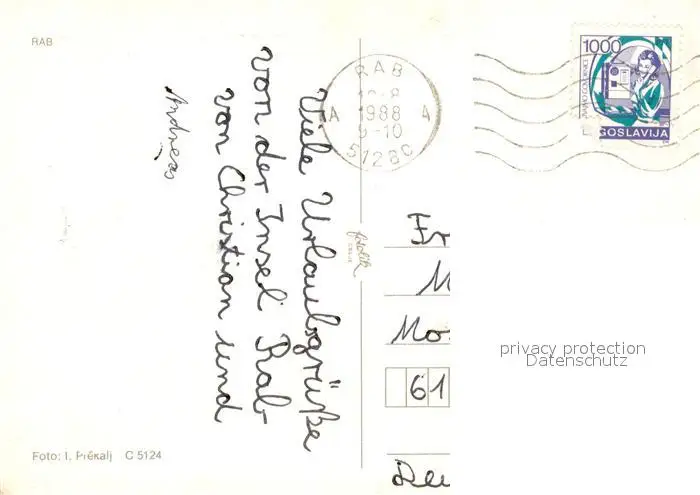 RAB
Viele Urlaubsgrüße
von der Insel Rab,
von Christian und
Andreas
Foto: I. Prêkalj C 5124
RAB
1988
9-10
51280
A A
1000
JAVNA GOVORNICA
GOSLAVIJA
fotolik
Fr
M
Mo
61
Deu
privacy protection
Datenschutz